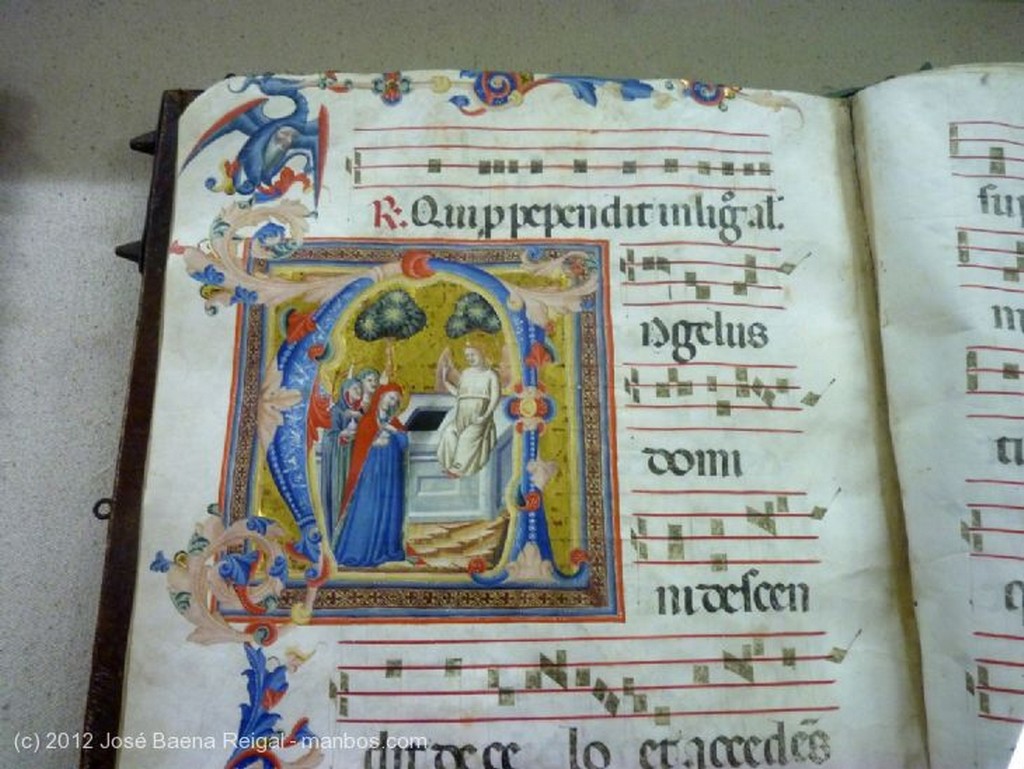 R: Qui p pependit in lig̃. al̃.
ngelus
domi
ni descen
dit de ce lo et accedẽs
su
n
ti
q
(c) 2012 José Baena Reigal - manbos.com